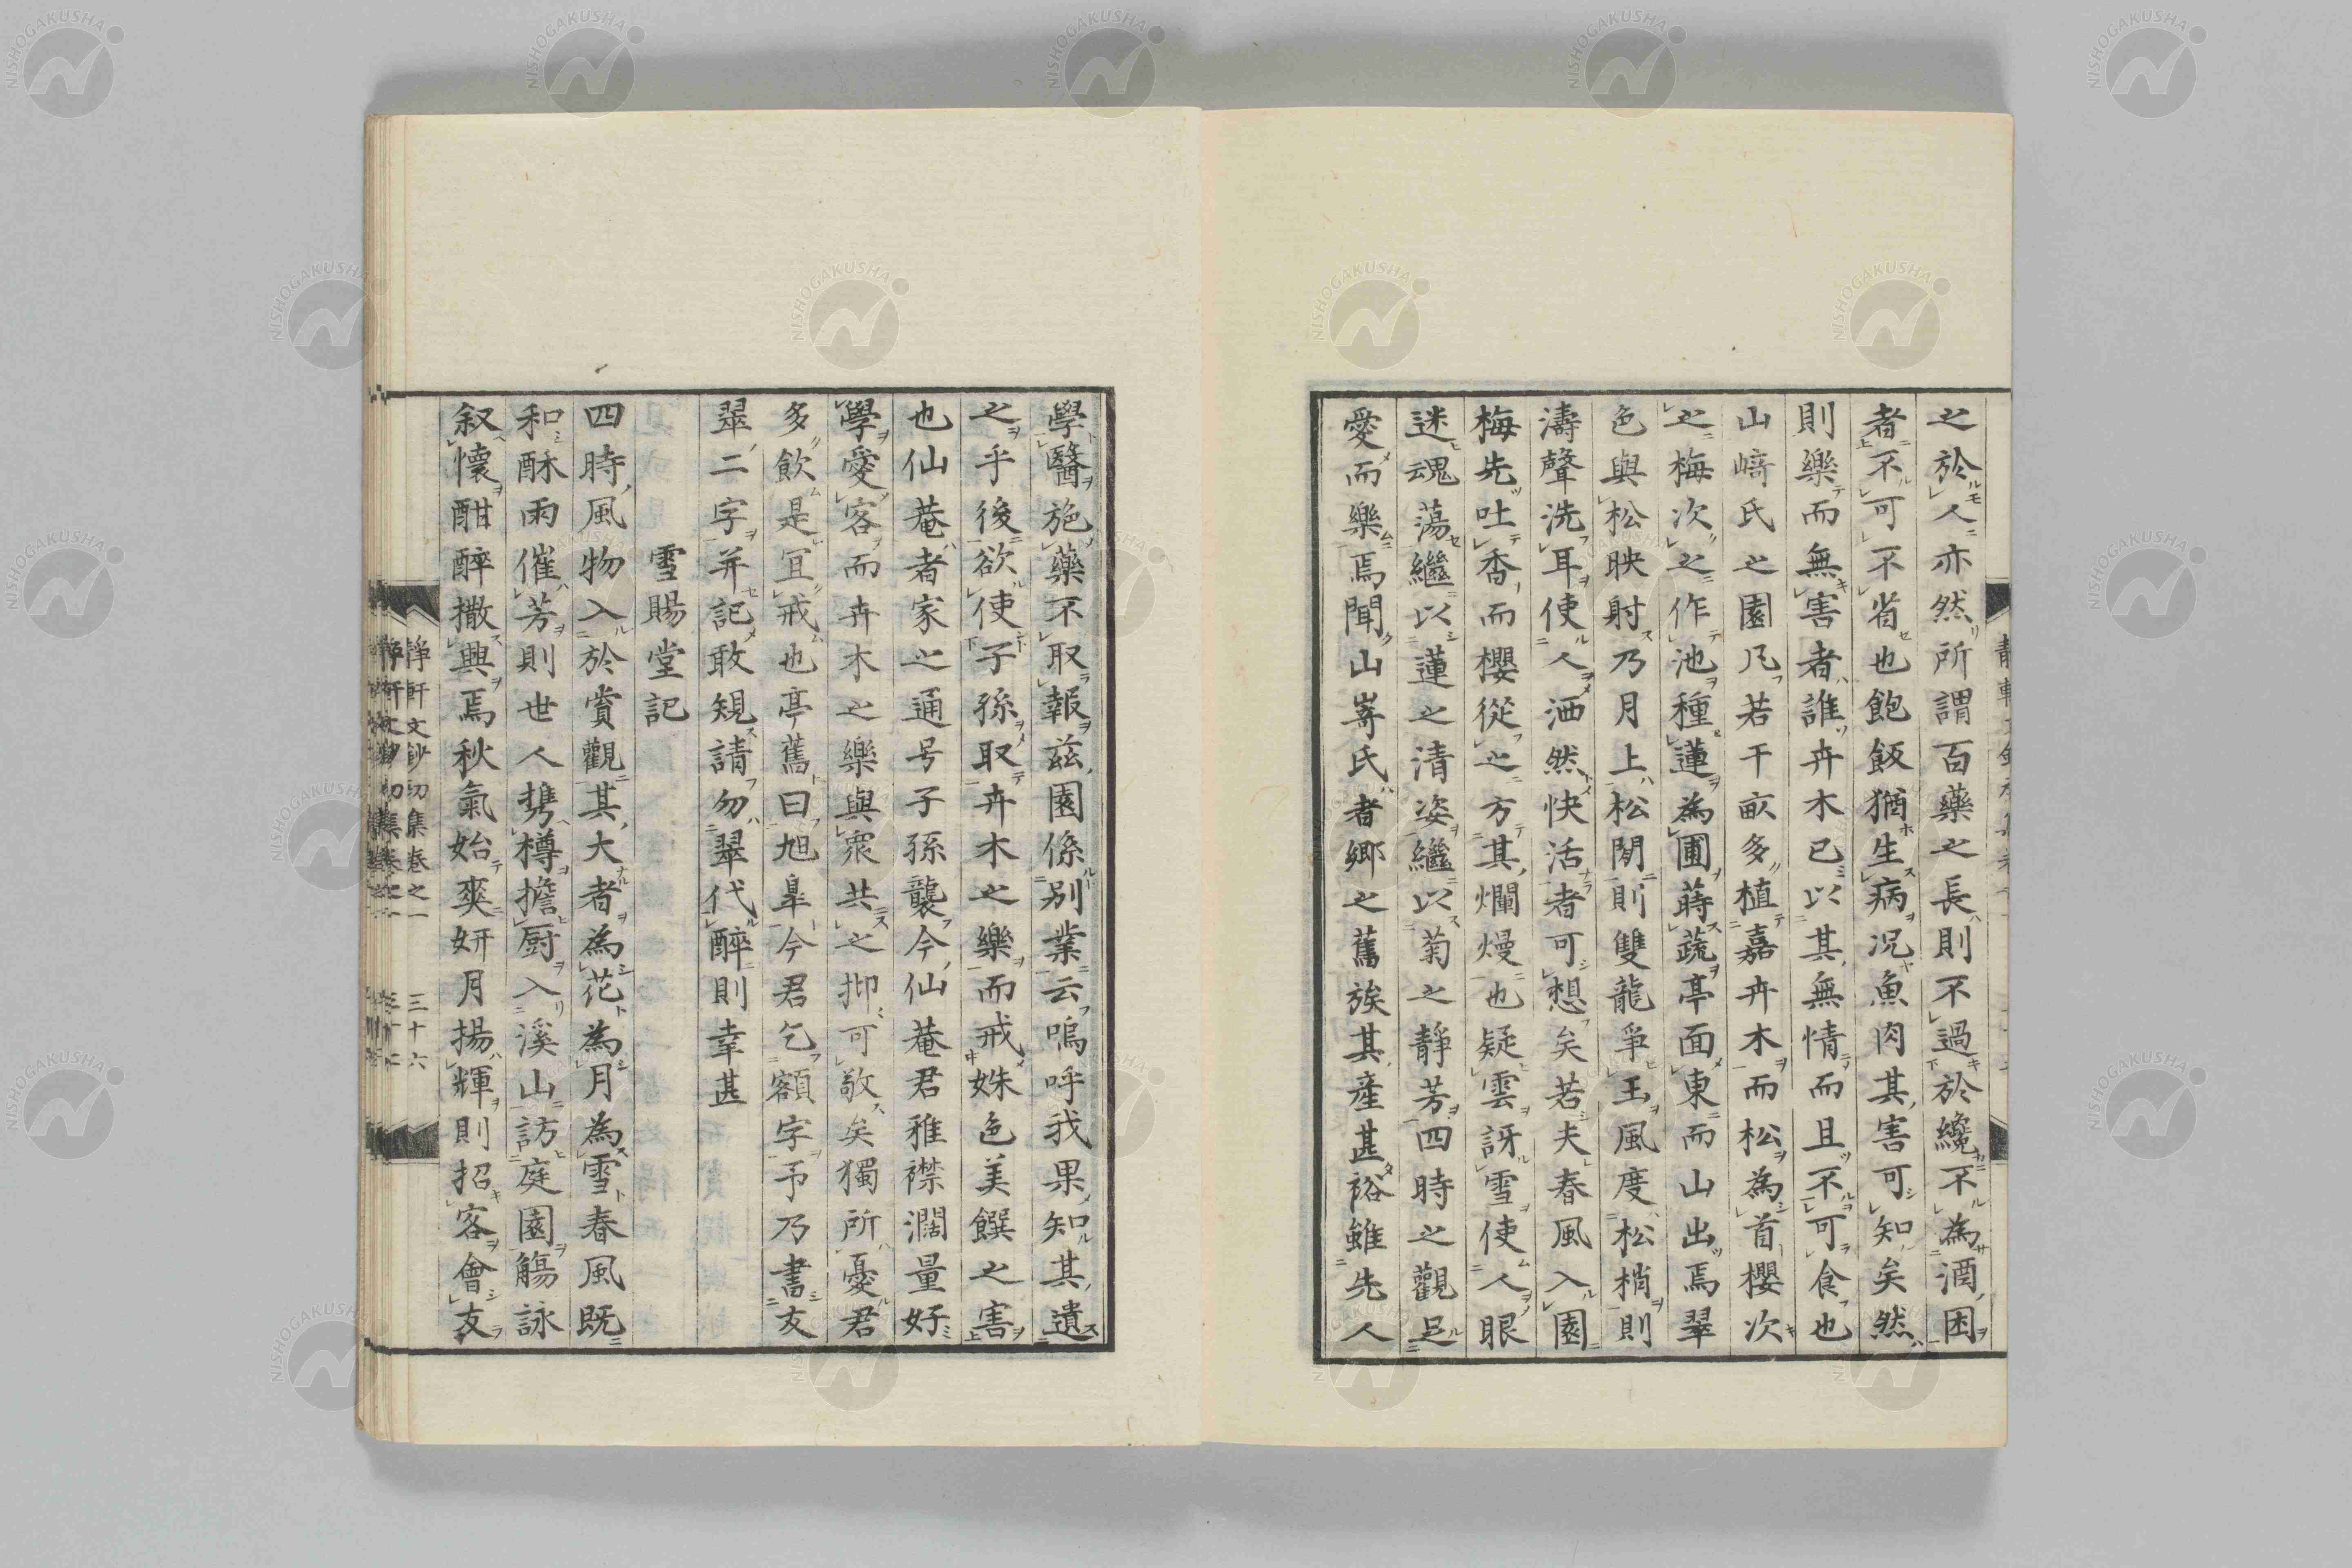 之於人亦然所謂百藥之長則不過於纔不為酒困
者不可不省也飽飯猶生病况魚肉其害可知矣然
則樂而無害者誰卉木已以其無情而且不可食也
山﨑氏之園凡若干畝多植嘉卉木而松為首櫻次
之梅次之作池種蓮為圃蒔蔬亭面東而山出焉翠
色與松映射乃月上松閒則雙龍爭玉風度松梢則
濤聲洗耳使人洒然快活者可想矣若夫春風入園
梅先吐香而櫻從之方其爛熳也疑雲訝雪使人眼
迷魂蕩繼以蓮之清姿繼以菊之靜芳四時之觀足
愛而樂焉聞山嵜氏者鄉之舊族其產甚裕雖先人
學醫施藥不取報茲園係別業云嗚呼我果知其遺
之乎後欲使子孫取卉木之樂而戒姝色美饌之害
也仙菴者家之通号子孫襲今仙菴君雅襟濶量好
學愛客而卉木之樂與衆共之抑可敬矣獨所憂君
多飲是冝戒也亭舊曰旭皐今君乞額字予乃書友
翠二字并記敢規請勿翠代醉則幸甚
雪賜堂記
四時風物入於賞觀其大者為花為月為雪春風既
和酥雨催芳則世人携樽擔厨入溪山訪庭園觴詠
叙懷酣醉撒興焉秋氣始爽姸月揚輝則招客會友
靜軒文鈔初集卷之一 三十六